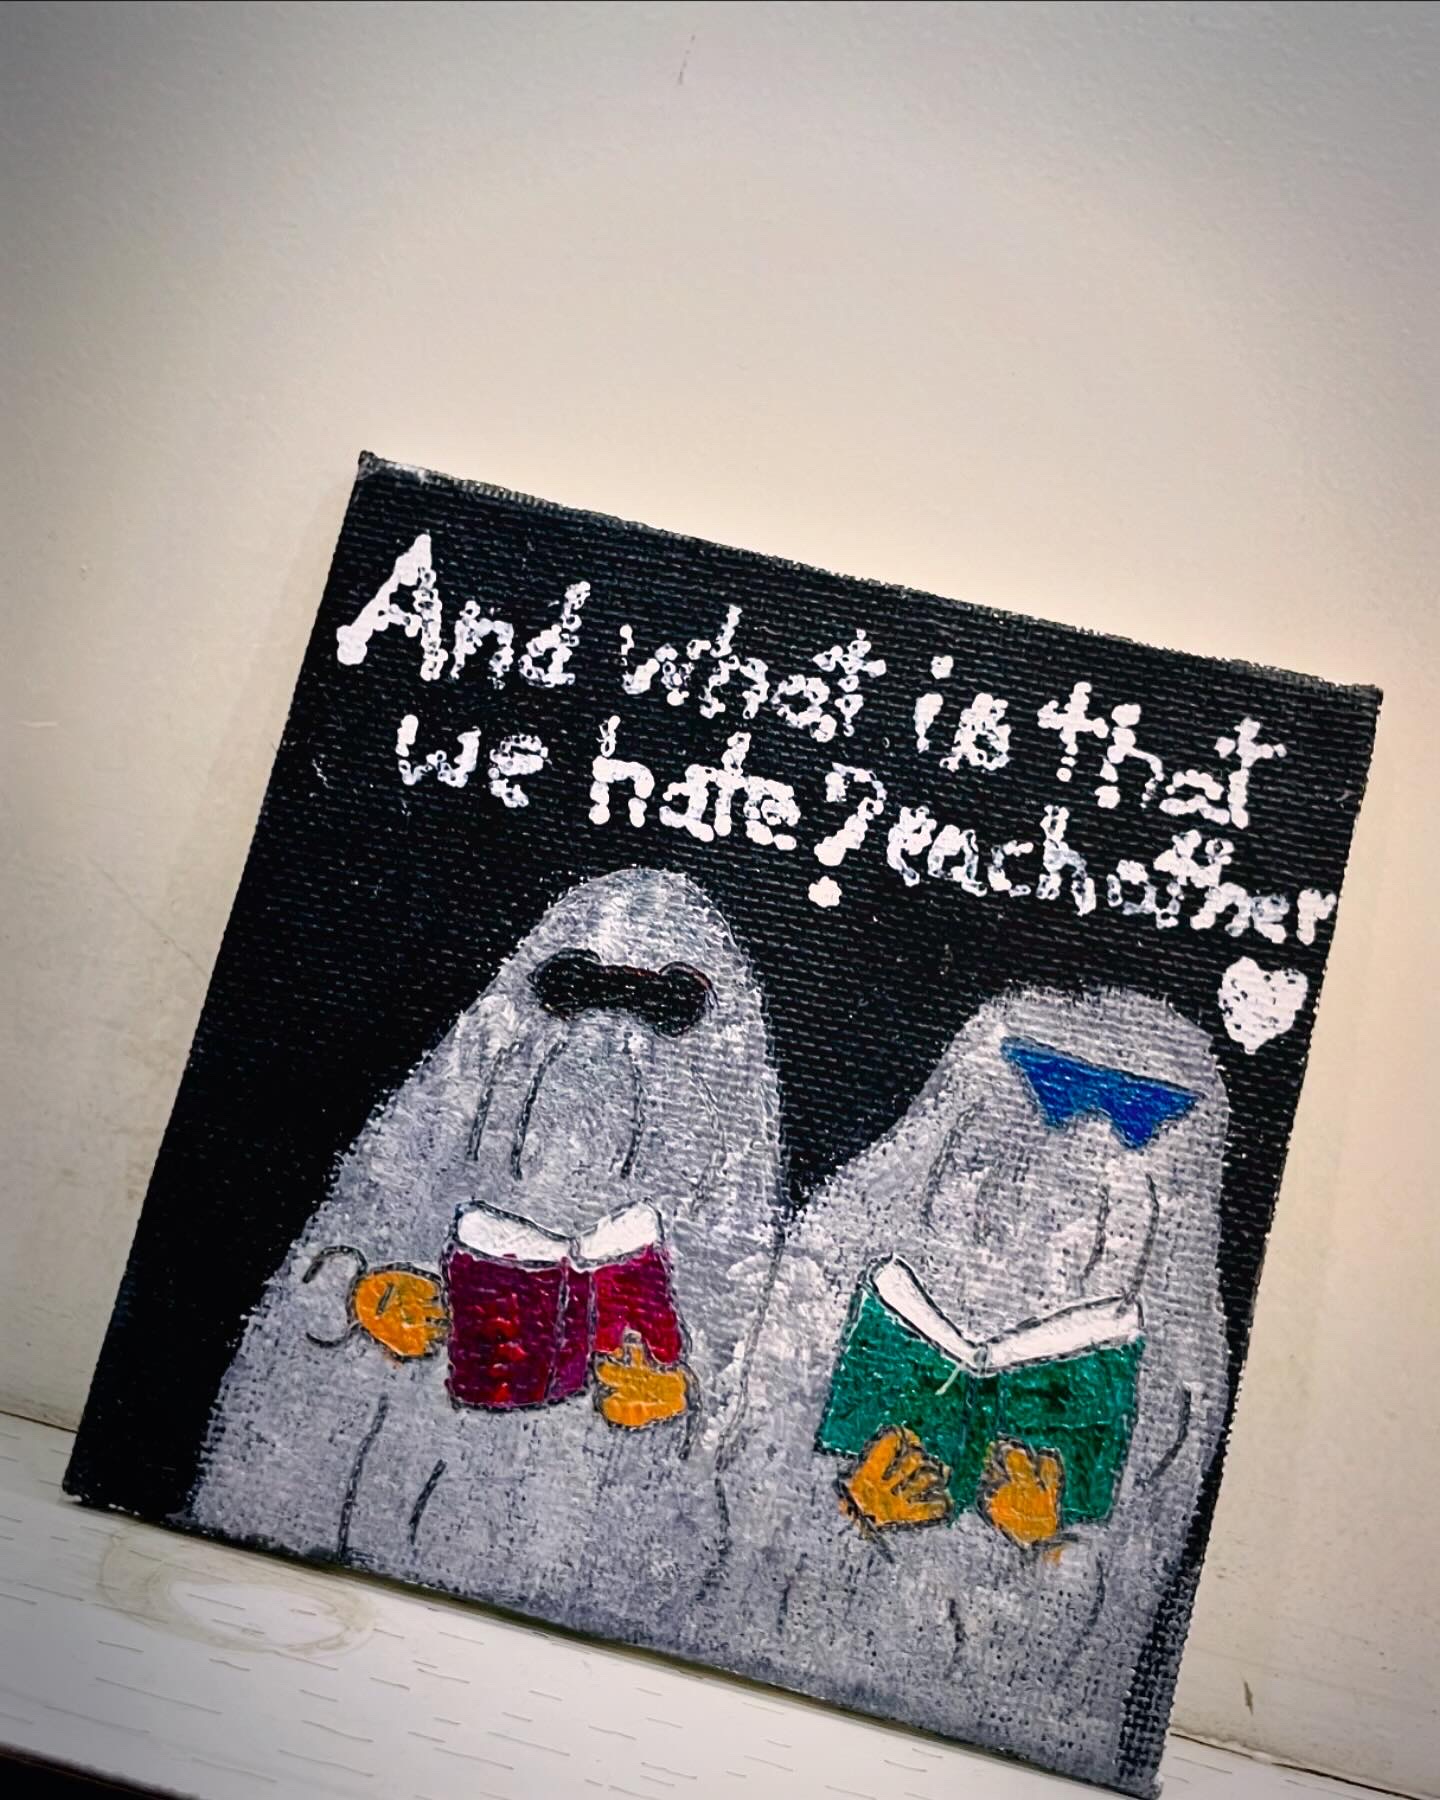 And what is that
we hate? eachother